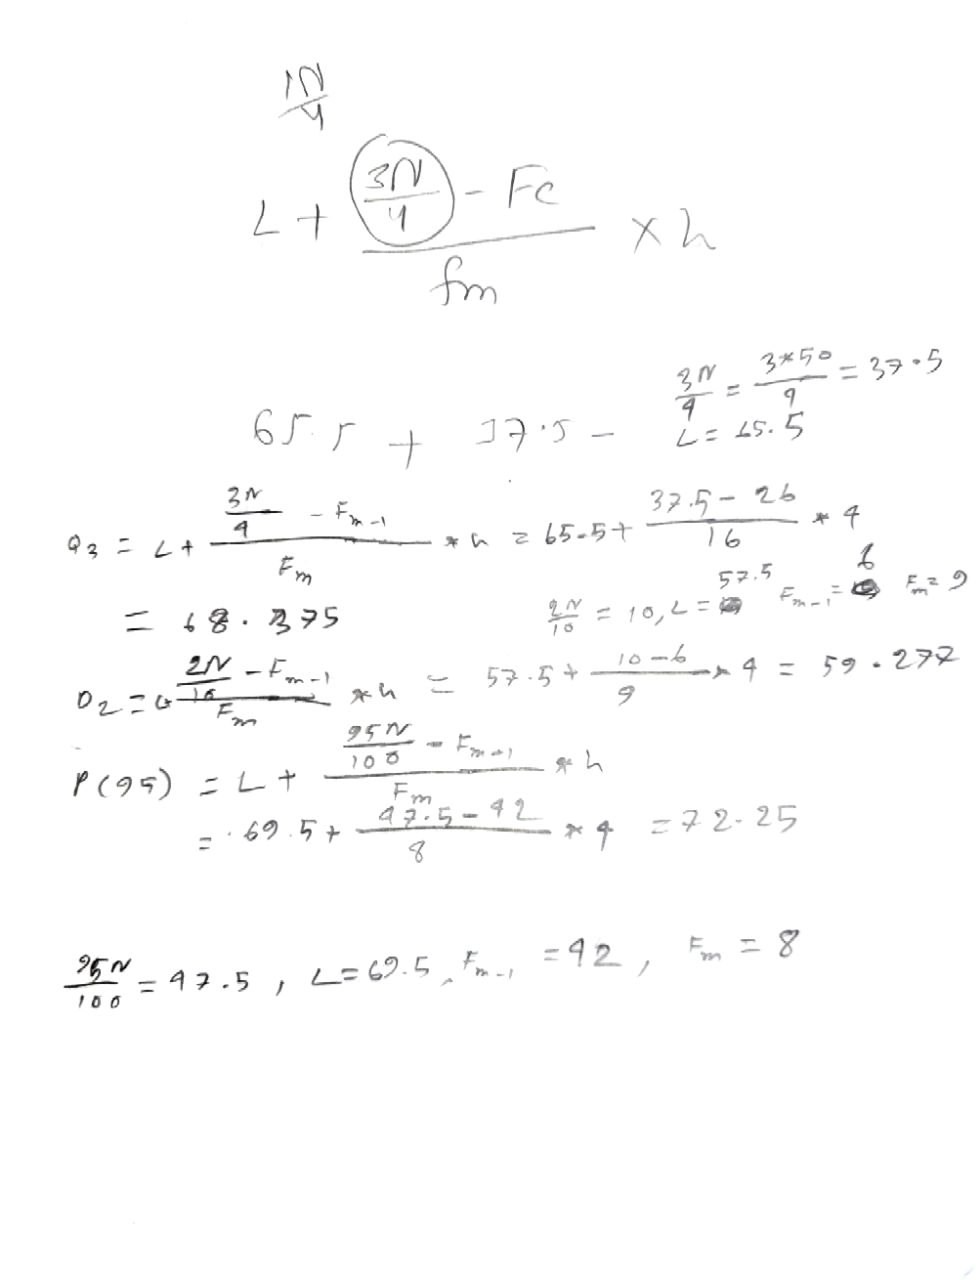 1N/4
L + (3N/4 - Fc)/fm × h
3N/4 = 3*50/4 = 37.5
65.5 + 37.5 -
L = 65.5
Q3 = L + (3N/4 - Fm-1)/Fm * h = 65.5 + (37.5 - 26)/16 * 4
= 68.375
2N/10 = 10, L = 57.5 Fm-1 = 6 Fm = 9
D2 = L + (2N/10 - Fm-1)/Fm * h = 57.5 + (10 - 6)/9 * 4 = 59.277
P(95) = L + (95N/100 - Fm-1)/Fm * h
= 69.5 + (47.5 - 42)/8 * 4 = 72.25
95N/100 = 47.5, L = 69.5, Fm-1 = 42, Fm = 8